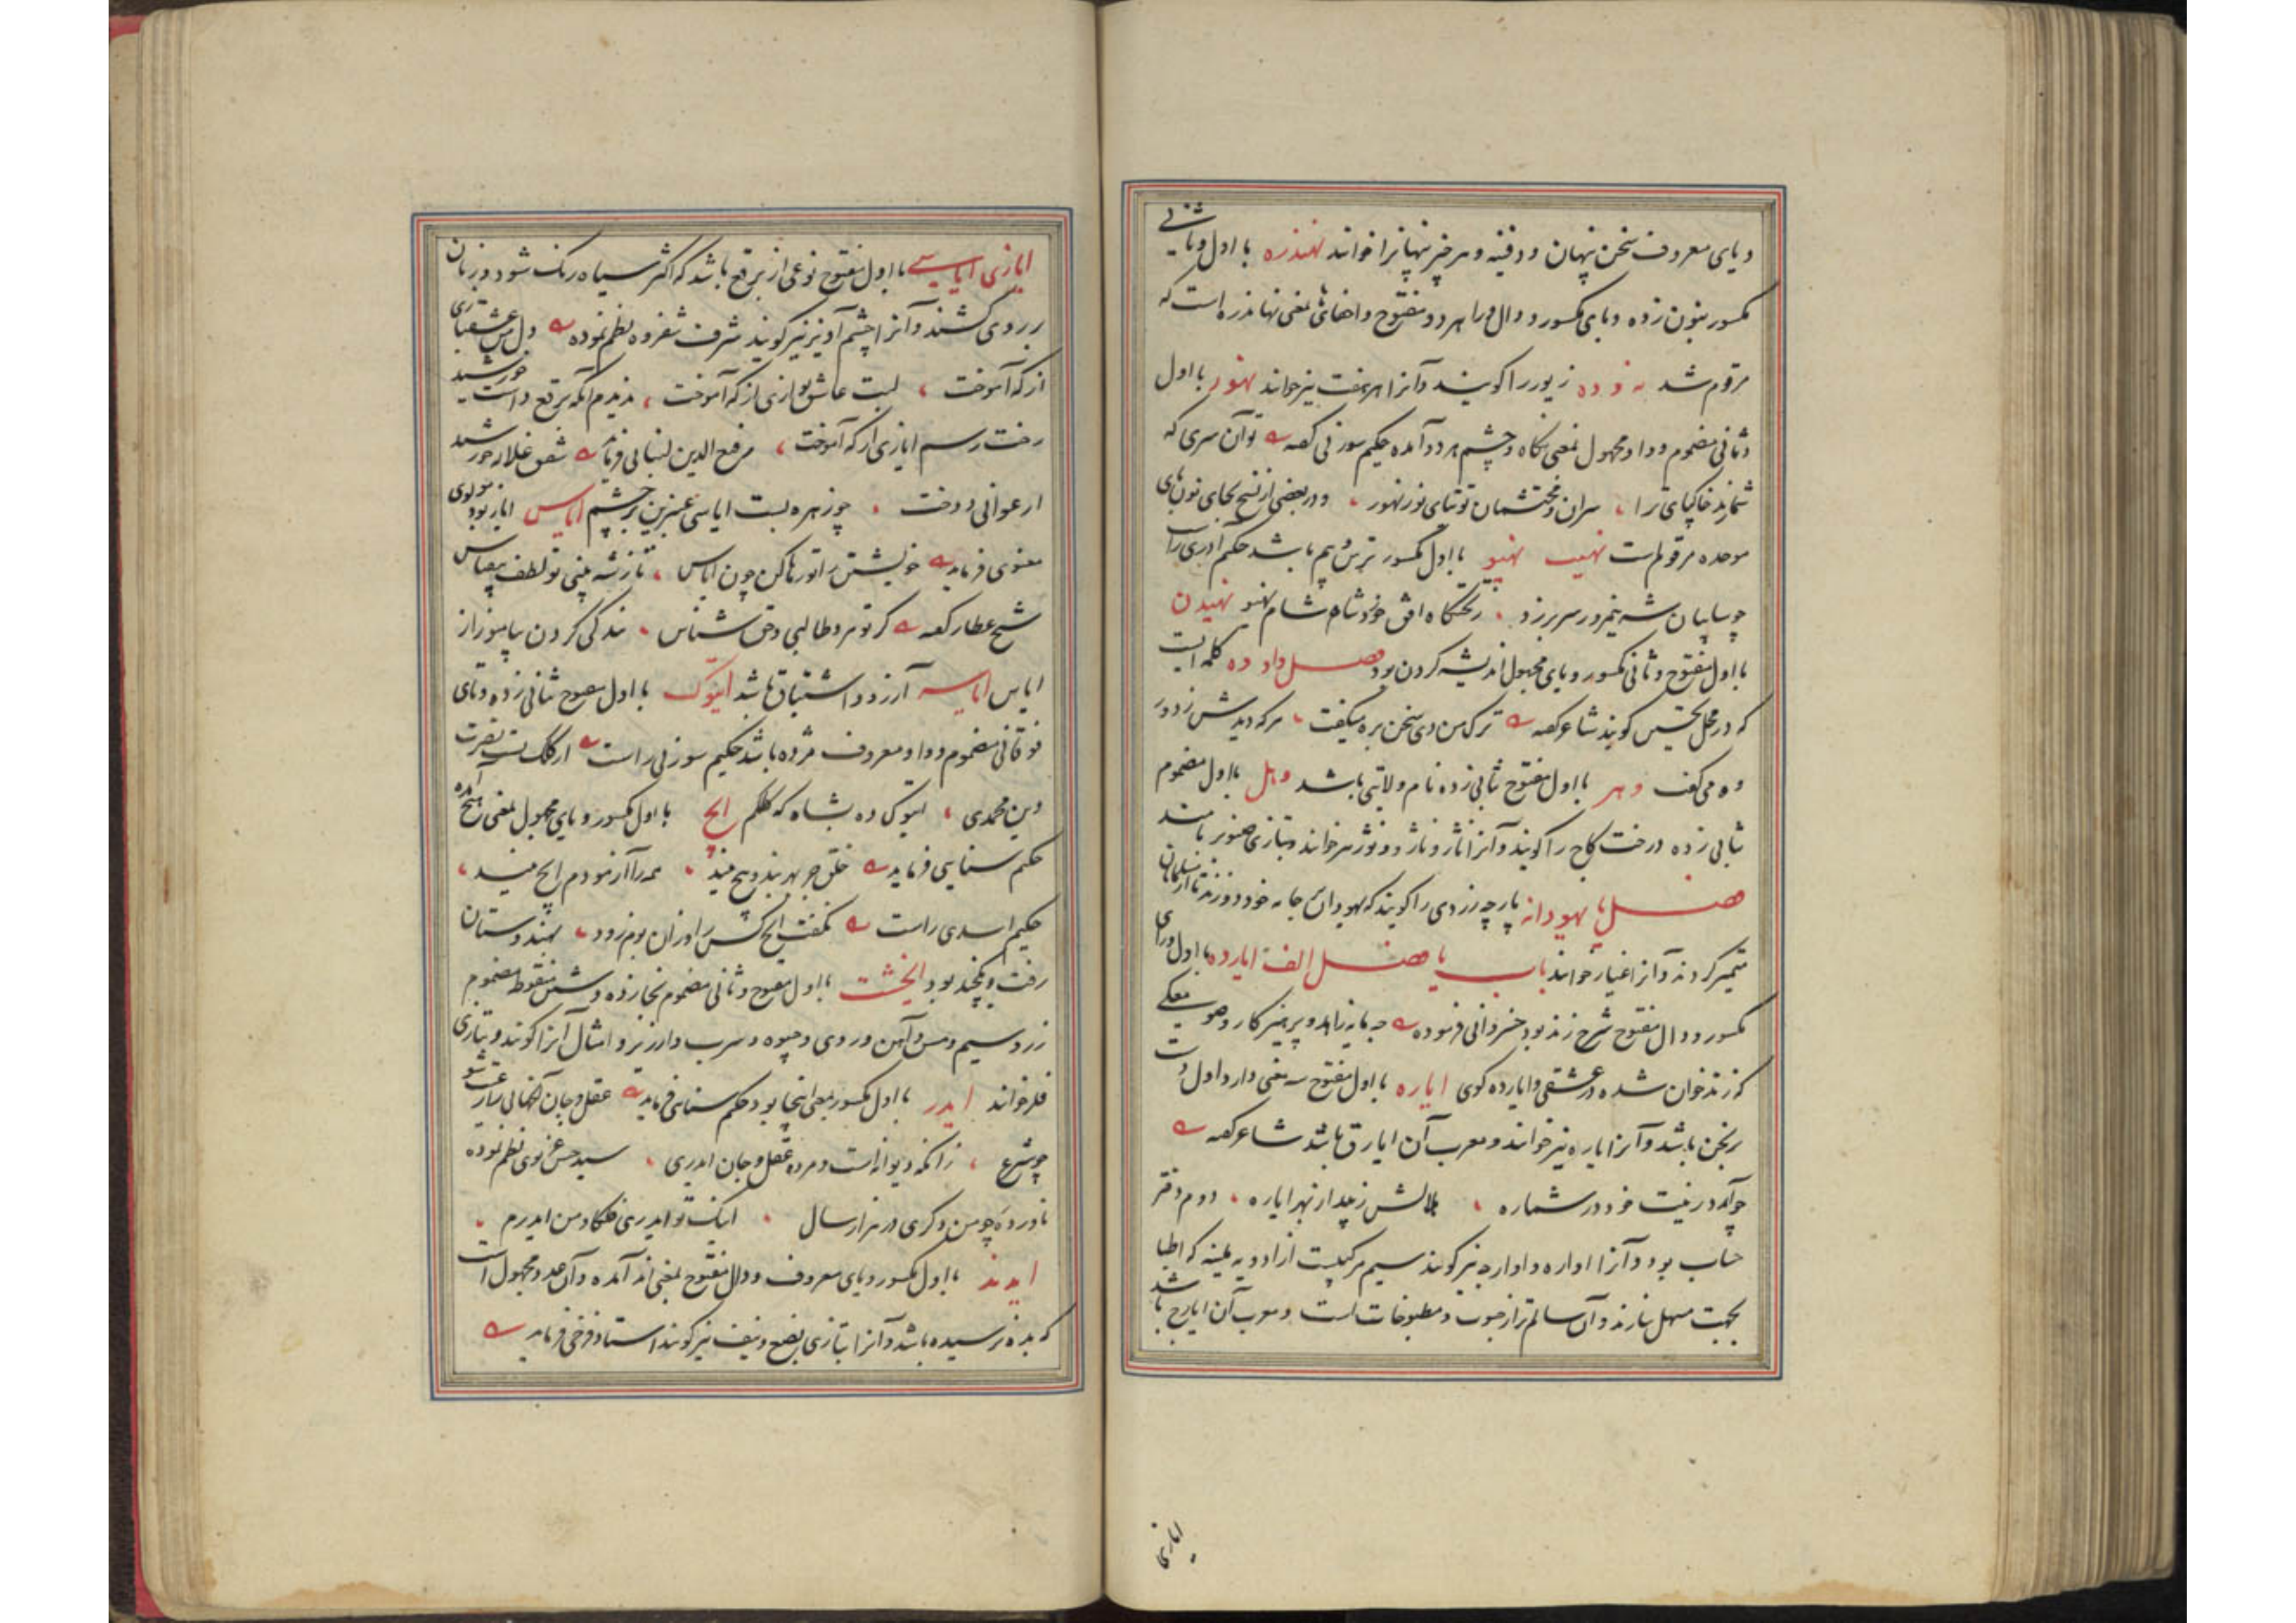 ویای معروف سخن پنهان و دفینه و هر چیز پنهانرا خوانند نهندره با اول و ثانی
مکسور بنون زده و یای مکسور و دال و را هر دو مفتوح و اخفای ها بمعنی نهاندره است که
مرقوم شد نه و ده زیور را گویند و آنرا هر هفت نیز خوانند نهور با اول
و ثانی مضموم و واو مجهول بمعنی نگاه و چشم هر دو آمده حکیم سوزنی گفته تو آن سری که
شمارند خاکپای ترا سران محتشمان توتیای نور نهور و در بعضی از نسخ بجای نون بای
موحده مرقوم است نهیب نهیو با اول مکسور ترس و بیم باشد حکیم آذری راست
چو سایبان شه نیمروز سر بر زد ز تختگاه افق خورد شاه شام نهیو نهیدن
با اول مفتوح و ثانی مکسور و یای مجهول اندیشه کردن بود فصل واو وه کلمه ایست
که در محل تحسین گویند شاعر گفته ترک من دی سخن بره میگفت هر که دیدش ز دور
وه می گفت وهر با اول مفتوح ثانی زده نام ولایتی باشد وهل با اول مضموم
ثانی زده درخت کاج را گویند و آنرا ناژ و ناژو و نوژ نیز خوانند و بتازی صنوبر نامند
فصل یا یهودانه پارچه زردی را گویند که یهودان بر جامه خود دوزند تا از مسلمانان
متمیز گردند و آنرا غیار خوانند باب یا فصل الف ایارده با اول و رای
مکسور و دال مفتوح شرح زند بود خسروانی فرموده چه مایه زاهد و پرهیزکار و صومعگی
که زند خوان شده در عشقی و ایارده گوی ایاره با اول مفتوح سه معنی دارد اول دست
برنجن باشد و آنرا یاره نیز خوانند و معرب آن ایارق باشد شاعر گفته
چو آمد در نیت خود در شماره هلالش زیبد از بهر ایاره دوم دفتر
حساب بود و آنرا اواره و اوارجه نیز گویند سیم مرکبیست از ادویه ملینه که اطبا
بجهت مسهل سازند و آن سالم تر از حبوب و مطبوخات است و معرب آن ایارج باشد
ایازی
ایازی ایاسی با اول مفتوح نوعی از برقع باشد که اکثر سیاه رنگ شود و زنان
بر روی کشند و آنرا چشم آویز نیز گویند شرف شفروه نظم نموده دل من عشقبازی
از که آموخت لبت عاشق نوازی از که آموخت ندیدم آنکه برقع داشت خورشید
رخت رسم ایازی از که آموخت رفیع الدین لنبانی فرماید شفق غلاله خورشید
ارغوانی دوخت چو زهره بست ایاسی عنبرین بر چشم ایاس ایاز بود مولوی
معنوی فرماید خویشتن را تو رها کن چون ایاس تا ز شه بینی تو لطف بیقیاس
شیخ عطار گفته گر تو مرد طالبی و حق شناس بندگی کردن بیاموز از
ایاس ایاسه آرزو و اشتیاق باشد ایتوک با اول مفتوح ثانی زده و تای
فوقانی مضموم و واو معروف مژده باشد حکیم سوزنی راست از کلک تست نصرت
دین محمدی ایتوکی ده بشاه که کلکم ایچ با اول مکسور و یای مجهول بمعنی هیچ آمده
حکیم سنایی فرماید خلق جز بهر بند و پیچ نیند همه را آزمودم ایچ نیند
حکیم اسدی راست نگفت ایچ کس را و زان بوم زود بهندوستان
رفت و یکچند بود ایخشت با اول مفتوح و ثانی مضموم بخا زده و شین منقوط مضموم
زر و سیم و مس و آهن و روی و جیوه و سرب و ارزیز و امثال آنرا گویند و بتازی
فلز خوانند ایدر با اول مکسور بمعنی اینجا بود حکیم سنائی فرماید عقل و جان آنجهانی باید
چو شرع زانکه دیوانه است و مرده عقل و جان ایدری سید حسن غزنوی نظم نموده
ناورده چو من دگری در هزار سال اینک تو ایدری فلکا و من ایدرم
ایدند با اول مکسور و یای معروف و دال مفتوح بمعنی اند آمده و آن عدد مجهول است
که بده نرسیده باشد و آنرا بتازی بضع و نیف نیز گویند استاد فرخی فرماید